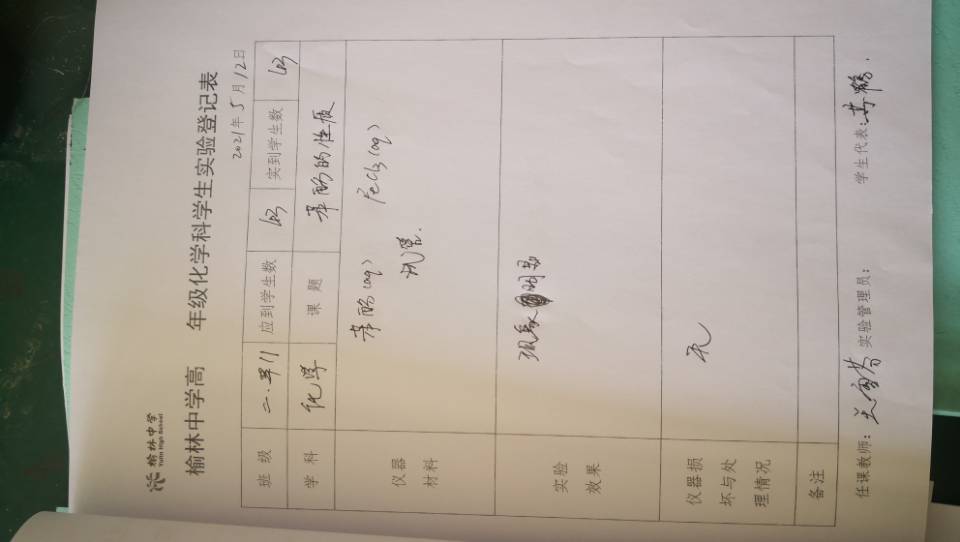 榆林中学
Yulin High School
榆林中学高 年级化学科学生实验登记表
2021年5月12日
班级 应到学生数 63 实到学生数 63
学科 化学 课题 苯酚的性质
仪器材料 苯酚(aq) FeCl3(aq)
试管.
实验效果 现象明显
仪器损坏与处理情况 无
备注
任课教师: 实验管理员: 学生代表: